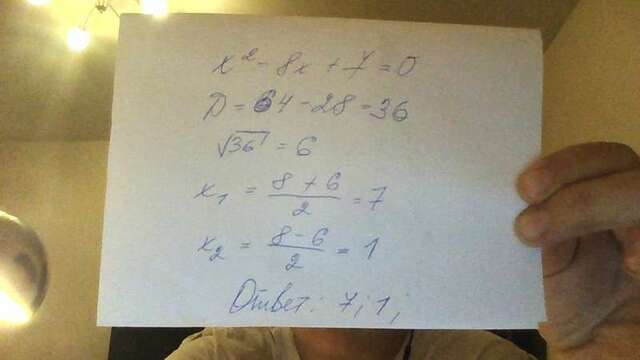 x² - 8x + 7 = 0
D = 64 - 28 = 36
√36 = 6
x₁ = (8 + 6)/2 = 7
x₂ = (8 - 6)/2 = 1
Ответ: 7; 1,